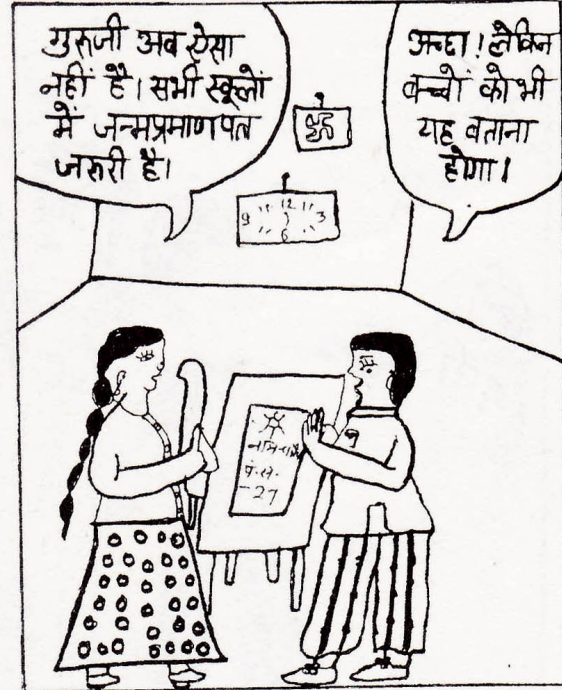 गुरुजी अब ऐसा
नहीं है। सभी स्कूलों
में जन्मप्रमाण पत्र
जरुरी है।
अच्छा! लेकिन
बच्चों को भी
यह बताना
होगा।
ॐ
12
9 3
6
27